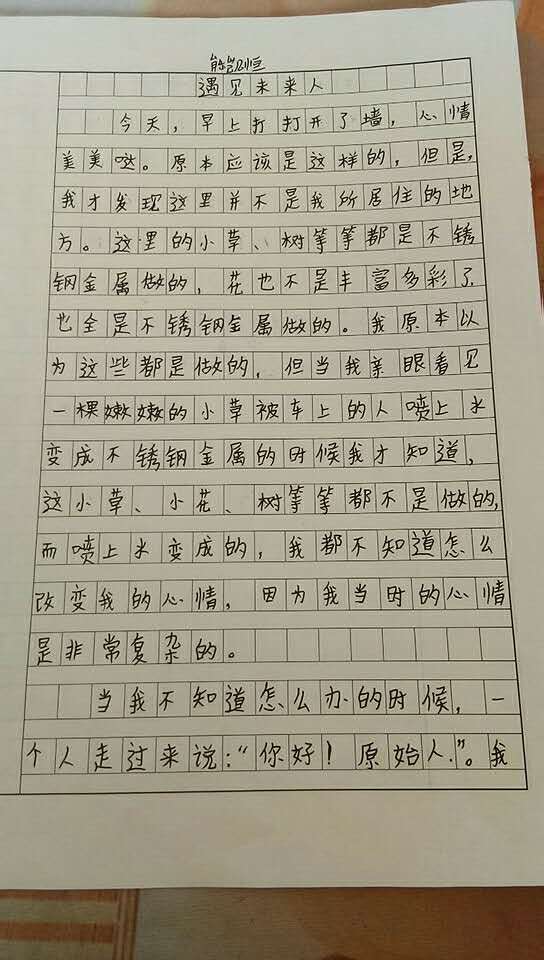 熊凯恒
遇见未来人
今天，早上打打开了墙，心情
美美哒。原本应该是这样的，但是，
我才发现这里并不是我所居住的地
方。这里的小草、树等等都是不锈
钢金属做的，花也不是丰富多彩了，
也全是不锈钢金属做的。我原本以
为这些都是做的，但当我亲眼看见
一棵嫩嫩的小草被车上的人喷上水
变成不锈钢金属的时候我才知道，
这小草、小花、树等等都不是做的，
而喷上水变成的，我都不知道怎么
改变我的心情，因为我当时的心情
是非常复杂的。
当我不知道怎么办的时候，一
个人走过来说：“你好！原始人.”。我